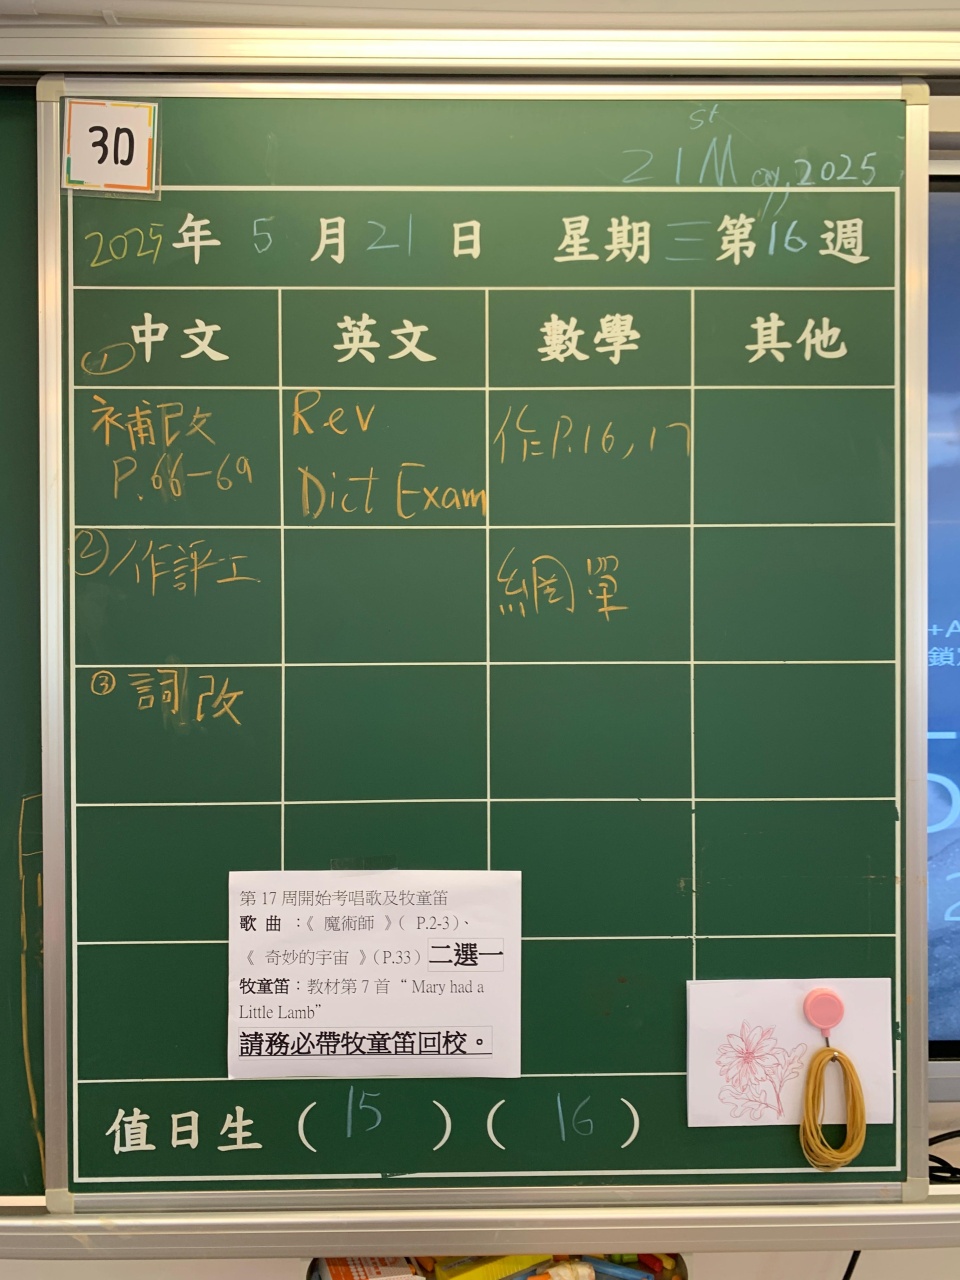 3D
21st May, 2025
2025年 5 月 21 日 星期 三 第 16 週
① 中文 英文 數學 其他
補改
P.66-69
Rev
Dict Exam
作P.16, 17
② 作評工
網單
③ 詞改
第 17 周開始考唱歌及牧童笛
歌 曲 :《 魔術師 》( P.2-3)、
《 奇妙的宇宙 》(P.33) 二選一
牧童笛：教材第 7 首 “ Mary had a
Little Lamb”
請務必帶牧童笛回校。
值日生 ( 15 ) ( 16 )
+A